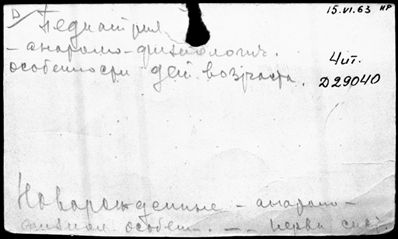 D
15.VI.63 НР
Педиатрия
- анатомо-физиологич.
особенности дет. возраста.
4чт.
D29040
Новорожденные - анатомо-
физиол. особен. - нервн. сист.